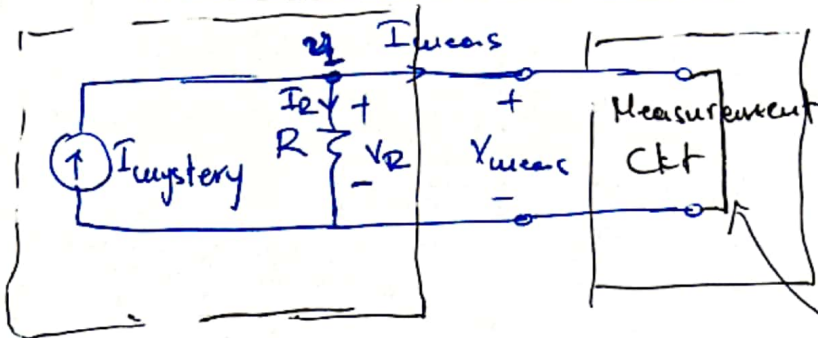 I meas
I_R +
R V_R
-
I mystery
+
V meas
-
Measurement
Ckt